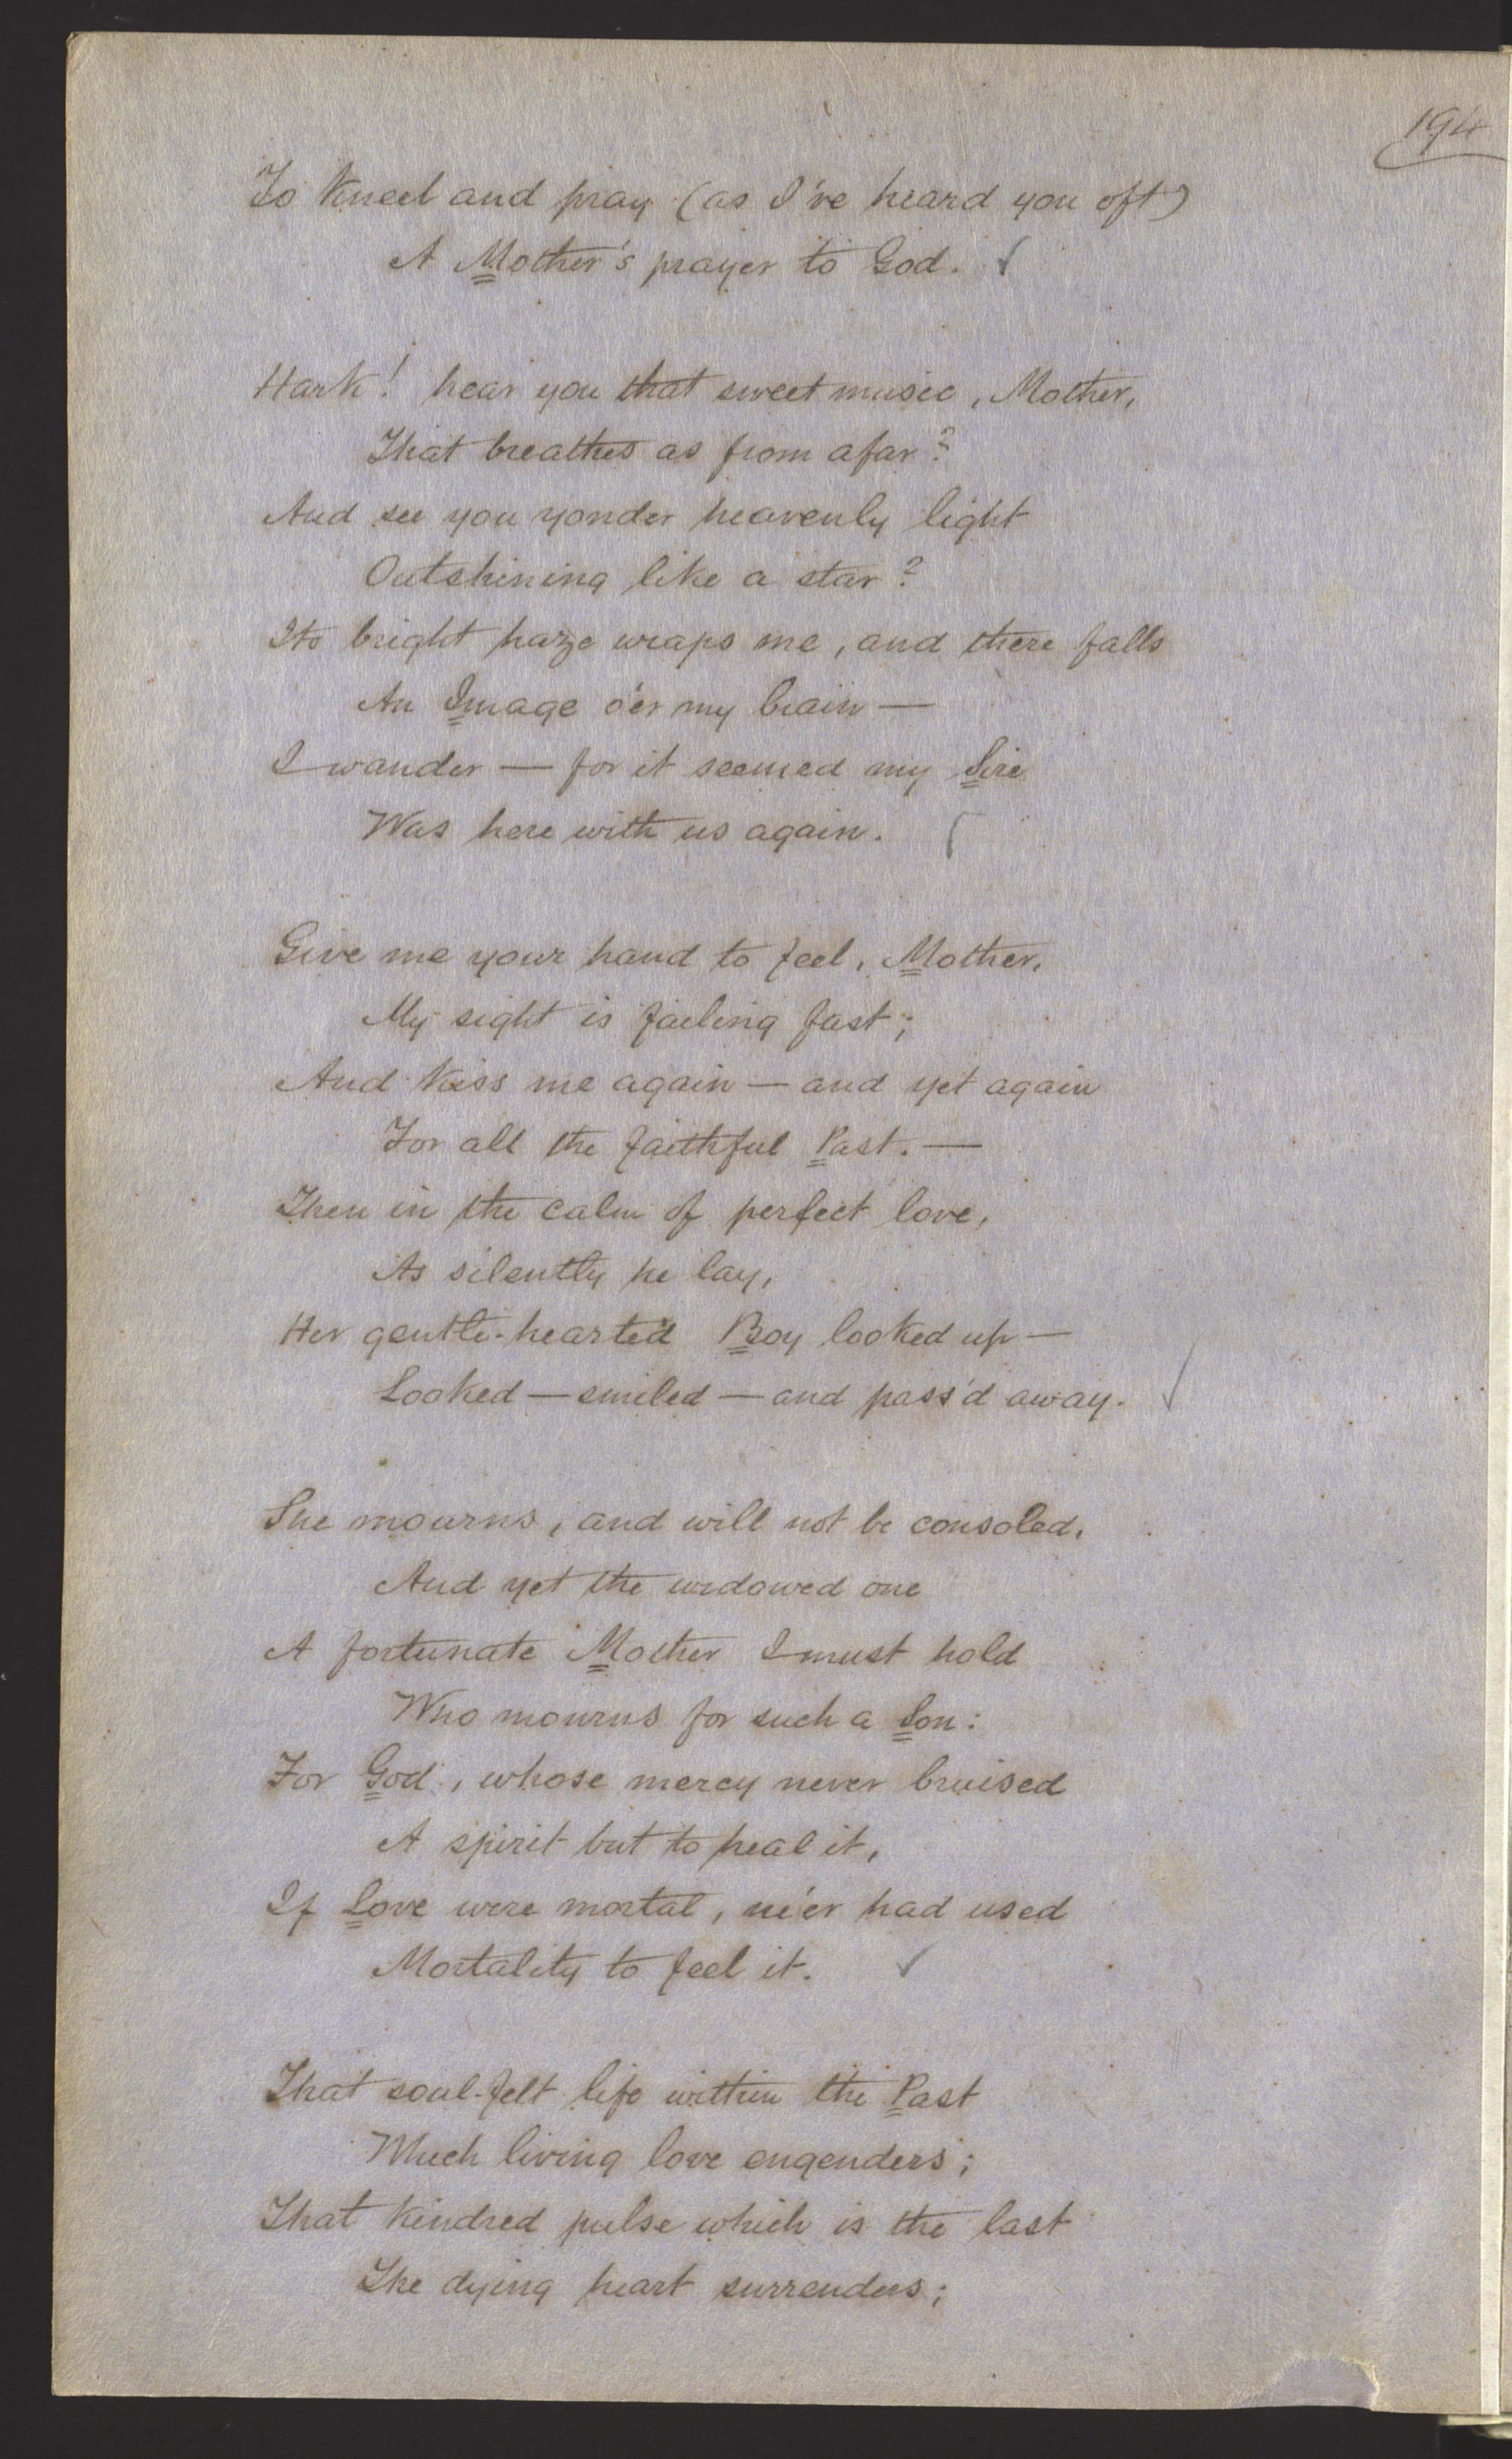 194
To kneel and pray (as I've heard you oft)
A Mother's prayer to God.
Hark! hear you that sweet music, Mother,
That breathes as from afar?
And see you yonder heavenly light
Outshining like a star?
Its bright haze wraps me, and there falls
An Image o'er my brain —
I wander — for it seemed my Sire
Was here with us again.
Give me your hand to feel, Mother,
My sight is failing fast;
And kiss me again — and yet again
For all the faithful Past. —
Then in the calm of perfect love,
As silently he lay,
Her gentle-hearted Boy looked up —
Looked — smiled — and pass'd away.
She mourns, and will not be consoled,
And yet the widowed one
A fortunate Mother I must hold
Who mourns for such a Son:
For God, whose mercy never bruised
A spirit but to heal it,
If Love were mortal, ne'er had used
Mortality to feel it.
That soul-felt life within the Past
Much living love engenders;
That kindred pulse which is the last
The dying heart surrenders;